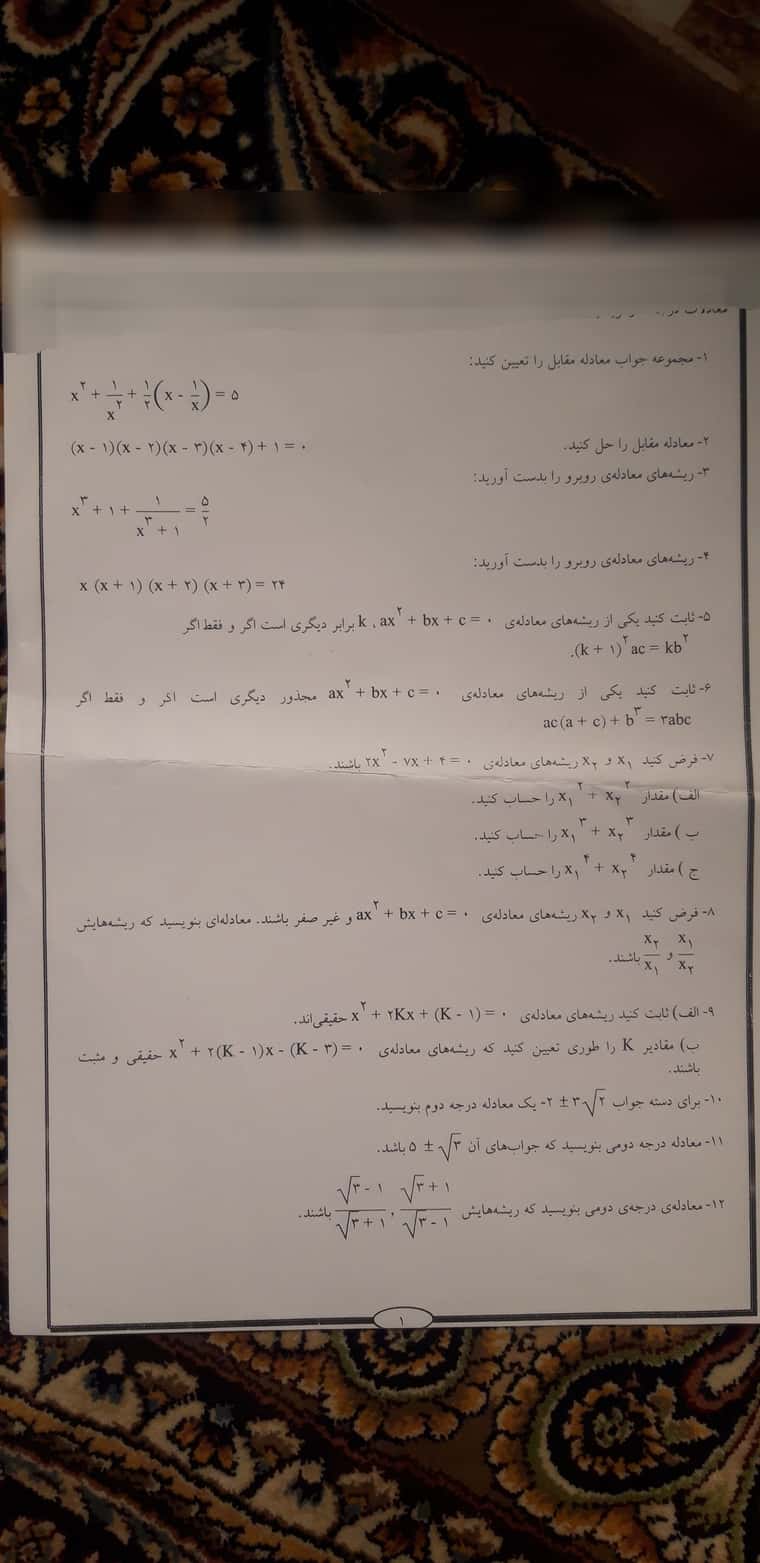 ۱- مجموعه جواب معادله مقابل را تعیین کنید:
x^۲ + ۱/x^۲ + ۱/۲(x - ۱/x) = ۵
۲- معادله مقابل را حل کنید. (x - ۱)(x - ۲)(x - ۳)(x - ۴) + ۱ = ۰
۳- ریشه‌های معادله‌ی روبرو را بدست آورید:
x^۳ + ۱ + ۱/(x^۳ + ۱) = ۵/۲
۴- ریشه‌های معادله‌ی روبرو را بدست آورید:
x (x + ۱) (x + ۲) (x + ۳) = ۲۴
۵- ثابت کنید یکی از ریشه‌های معادله‌ی ax^۲ + bx + c = ۰ ، k برابر دیگری است اگر و فقط اگر
(k + ۱)^۲ ac = kb^۲.
۶- ثابت کنید یکی از ریشه‌های معادله‌ی ax^۲ + bx + c = ۰ مجذور دیگری است اگر و فقط اگر
ac(a + c) + b^۳ = ۳abc
۷- فرض کنید x₁ و x₂ ریشه‌های معادله‌ی ۲x^۲ - ۷x + ۴ = ۰ باشند.
الف) مقدار x₁^۲ + x₂^۲ را حساب کنید.
ب ) مقدار x₁^۳ + x₂^۳ را حساب کنید.
ج ) مقدار x₁^۴ + x₂^۴ را حساب کنید.
۸- فرض کنید x₁ و x₂ ریشه‌های معادله‌ی ax^۲ + bx + c = ۰ و غیر صفر باشند. معادله‌ای بنویسید که ریشه‌هایش
x₁/x₂ و x₂/x₁ باشند.
۹- الف) ثابت کنید ریشه‌های معادله‌ی x^۲ + ۲Kx + (K - ۱) = ۰ حقیقی‌اند.
ب) مقادیر K را طوری تعیین کنید که ریشه‌های معادله‌ی x^۲ + ۲(K - ۱)x - (K - ۳) = ۰ حقیقی و مثبت
باشند.
۱۰- برای دسته جواب -۲ ± ۳√۲ یک معادله درجه دوم بنویسید.
۱۱- معادله درجه دومی بنویسید که جواب‌های آن ۵ ± √۳ باشد.
۱۲- معادله‌ی درجه‌ی دومی بنویسید که ریشه‌هایش (√۳ + ۱)/(√۳ - ۱) ، (√۳ - ۱)/(√۳ + ۱) باشند.
۱